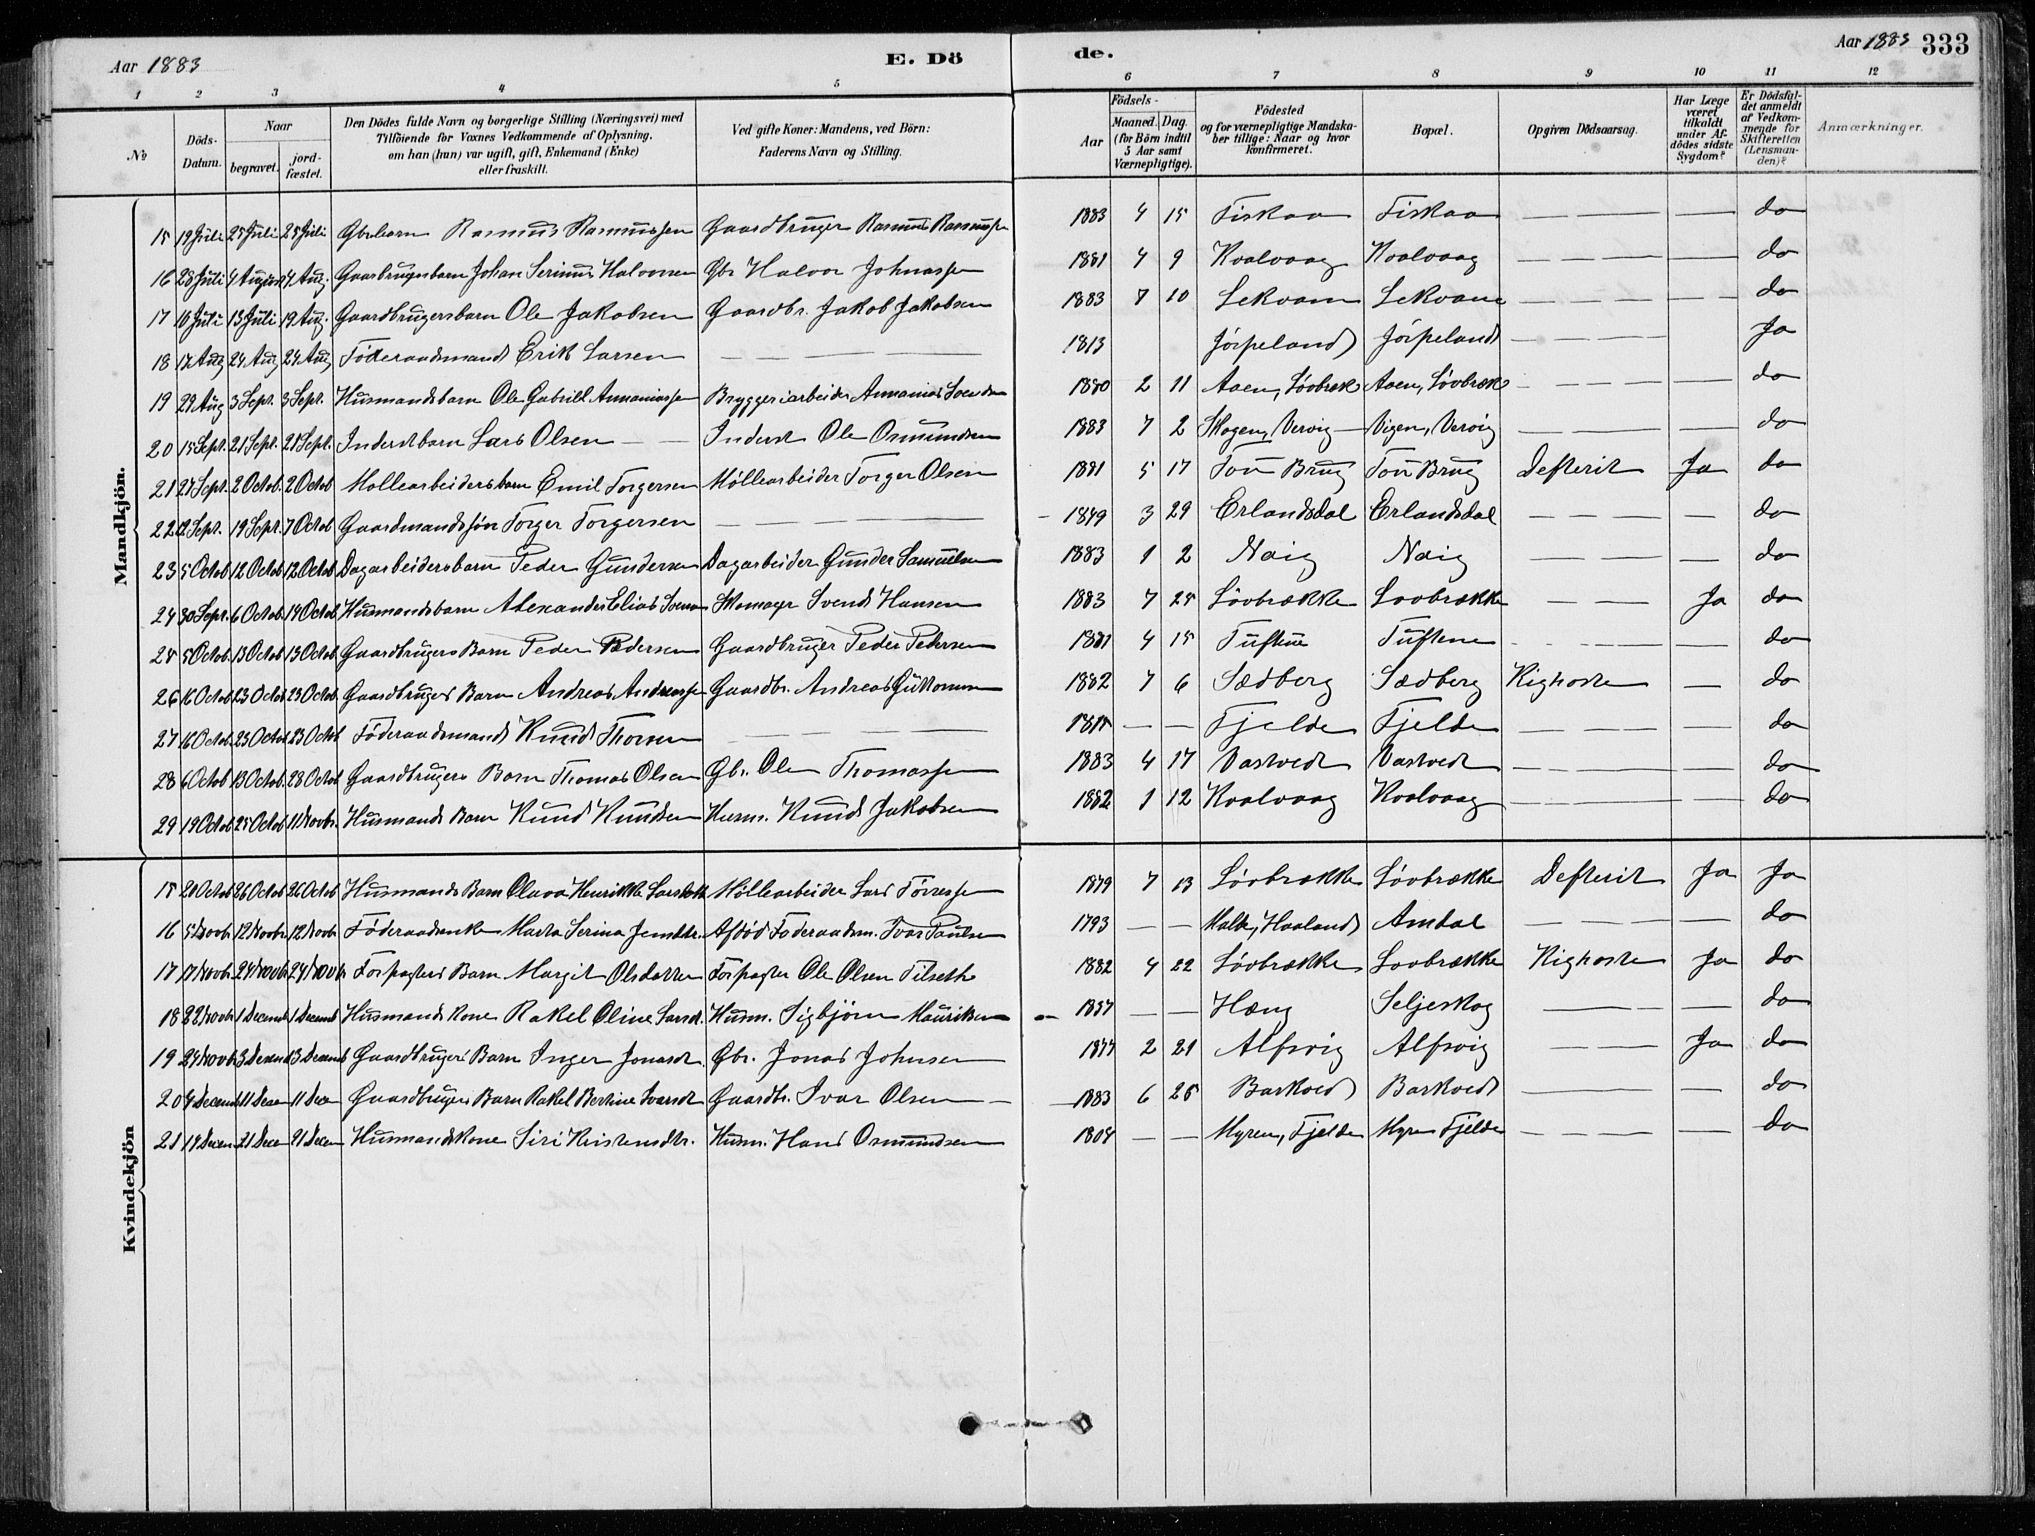 Aar 1883
E. Dö
de.
Aar 1883
333
1 2 3 4 5 6 7 8 9 10 11 12
No
Döds-Datum.
Naar
begravet.
jord-fæstet.
Den Dödes fulde Navn og borgerlige Stilling (Næringsvei) med
Tilföiende for Voxnes Vedkommende af Oplysning,
om han (hun) var ugift, gift, Enkemand (Enke)
eller fraskilt.
Ved gifte Koner: Mandens, ved Börn:
Faderens Navn og Stilling.
Födsels-
Aar
Maaned. Dag.
(for Börn indtil
5 Aar samt
Værnepligtige).
Födested
og for værnepligtige Mandska-
ber tillige: Naar og hvor
konfirmeret.
Bopæl.
Opgiven Dödsaarsag.
Har Læge
været
tilkaldt
under Af-
dödes sidste
Sygdom?
Er Dödsfal-
det anmeldt
af Vedkom-
mende for
Skifteretten
(Lensman-
den)?
Anmærkninger.
Mandkjön.
15 19 Juli 25 Juli 25 Juli Gbrbarn Rasmus Rasmussen Gaardbruger Rasmus Rasmussen 1883 4 15 Fiskaa Fiskaa — — — — do
16 28 Juli 4 August 4 Aug. Gaardbrugersbarn Johan Serinus Halvorsen Gbr Halvor Johnassen 1881 4 9 Kvalvaag Kvalvaag — — — — do
17 10 Juli 13 Juli 19 Aug. Gaardbrugersbarn Ole Jakobsen Gaardbr. Jakob Jakobsen 1883 7 10 Lekvam Lekvam — — — — do
18 17 Aug 24 Aug 24 Aug Föderaadsmand Erik Larsen — — — 1813 Jörpeland Jörpeland — — — Ja
19 29 Aug 3 Sept. 3 Sept. Husmandsbarn Ole Gabriel Annaniassen Bryggeriarbeider Annanias Svendsen 1880 2 11 Aaen, Lövbræk Aaen, Lövbræk — — — — do
20 15 Sept. 21 Sept. 21 Sept. Inderstbarn Lars Olsen — — Inderst Ole Osmundsen 1883 7 2 Skogen, Vervig Vigen, Vervig — — — — do
21 27 Sept. 2 Octob. 2 Octob Möllearbeidersbarn Emil Torgersen Möllearbeider Torger Olsen 1881 5 17 Tou Brug Tou Brug Defterit Ja do
22 12 Sept. 19 Sept. 7 Octob Gaardmandssjön Torger Torgersen — — — 1849 3 29 Erlandsdal Erlandsdal — — — — do
23 5 Octob 12 Octob 12 Octob Dagarbeidersbarn Peder Gundersen Dagarbeider Gunder Samuelsen 1883 1 2 Naig Naig — — — do
24 30 Sept. 6 Octob. 14 Octob Husmandsbarn Alexander Elias Svendsen Skomager Svend Hansen 1883 7 25 Lövbrække Lovbrække — — Ja do
25 5 Octob. 13 Octob. 13 Octob Gaardbrugers Barn Peder Pedersen Gaardbruger Peder Pedersen 1881 4 15 Tuftene Tuftene — — — — do
26 16 Octob 23 Octob 23 Octob. Gaardbrugers Barn Andreas Andreassen Gaardbr. Andreas Guttormsen 1882 7 6 Sædberg Sædberg Kighoste — do
27 16 Octob. 23 Octob. 23 Octob Föderaadsmand Knud Thorsen — — — — — Fjelde Fjelde — — — — do
28 6 Octob 13 Octob. 28 Octob Gaardbrugers Barn Thomas Olsen Gbr. Ole Thomassen 1883 4 17 Vastvedt Vastvedt — — — — do
29 19 Octob 25 Octob 11 Novbr. Husmands Barn Knud Knudsen Husm. Knud Jakobsen 1882 1 12 Kvalvaag Kvalvaag — — — — do
Kvindekjön
15 20 Octob 26 Octob 26 Octob Husmands Barn Olava Henrikke Larsdatter Möllearbeider Lars Törresen 1879 7 13 Lövbrække Lövbrække Defterit Ja Ja
16 5 Novbr. 12 Novbr. 12 Novbr. Föderaadsenke Marta Serina Jensdtr. Afdöd Föderaadsm. Ivar Paulsen 1793 — — Malde, Haaland Amdal — — — do
17 17 Novbr. 24 Novbr. 24 Novbr Forpagters Barn Margit Olsdatter Forpagter Ole Olsen Tilseth 1882 4 22 Lövbrække Lovbrække Kighoste Ja do
18 22 Novbr 1 Decemb 1 Decemb Husmands Kone Rakel Oline Larsdt. Husm. Sigbjörn Mauritsen 1857 — — Hæng Seljeskog — — do
19 24 Novbr 3 Decemb 3 Decemb Gaardbrugers Barn Inger Jonasdt. Gbr. Jonas Johnsen 1877 2 21 Alfsvig Alfsvig — — Ja do
20 4 Decemb 11 Decem 11 Decem Gaardbrugers Barn Rakel Bertine Ivarsdt. Gaardbr. Ivar Olsen — 1883 6 25 Barkved Barkved — — — do
21 14 Decem 21 Decem 21 Decem Husmandskone Siri Kristensdtr. Husm. Hans Osmundsen 1804 — — Myren, Fjelde Myren Fjelde — — — — do